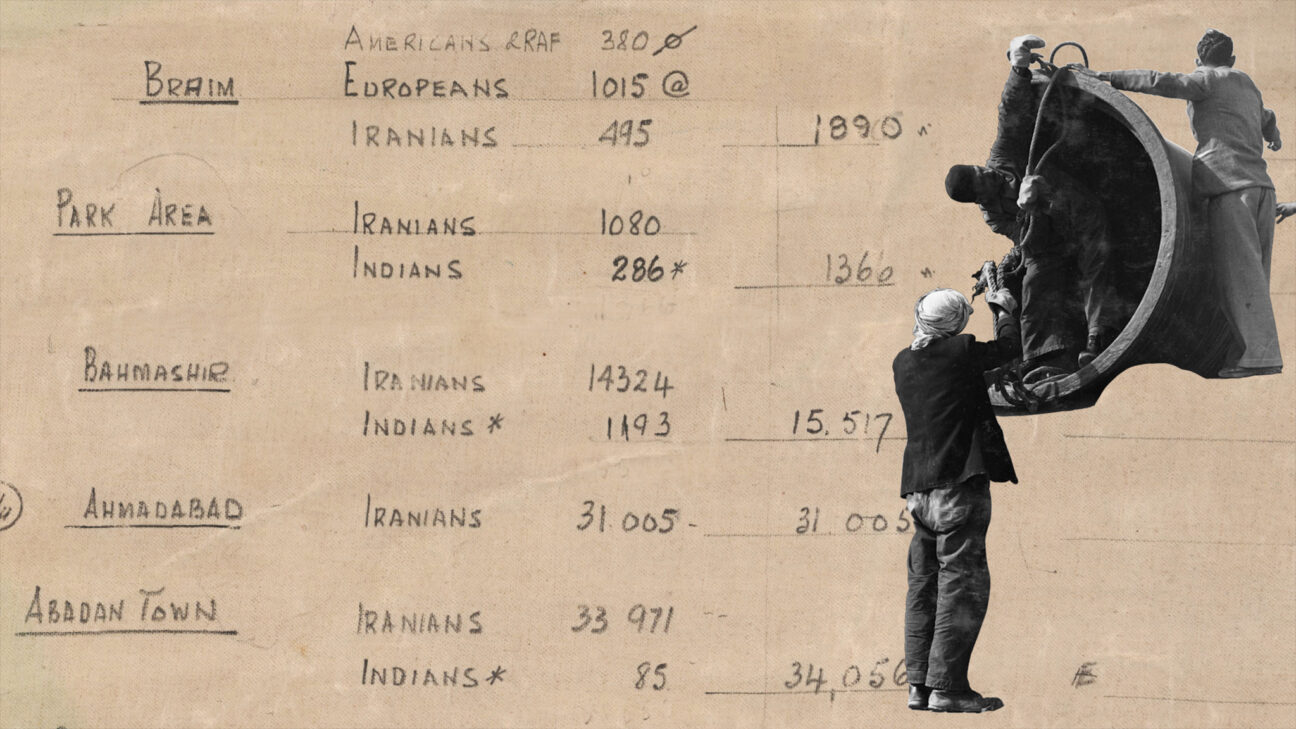 AMERICANS & RAF 380 ø
BRAIM EUROPEANS 1015 @
IRANIANS 495 1890
PARK AREA IRANIANS 1080
INDIANS 286* 1366
BAHMASHIR IRANIANS 14324
INDIANS* 1193 15,517
AHMADABAD IRANIANS 31.005- 31.005
ABADAN TOWN IRANIANS 33 971
INDIANS* 85 34,056